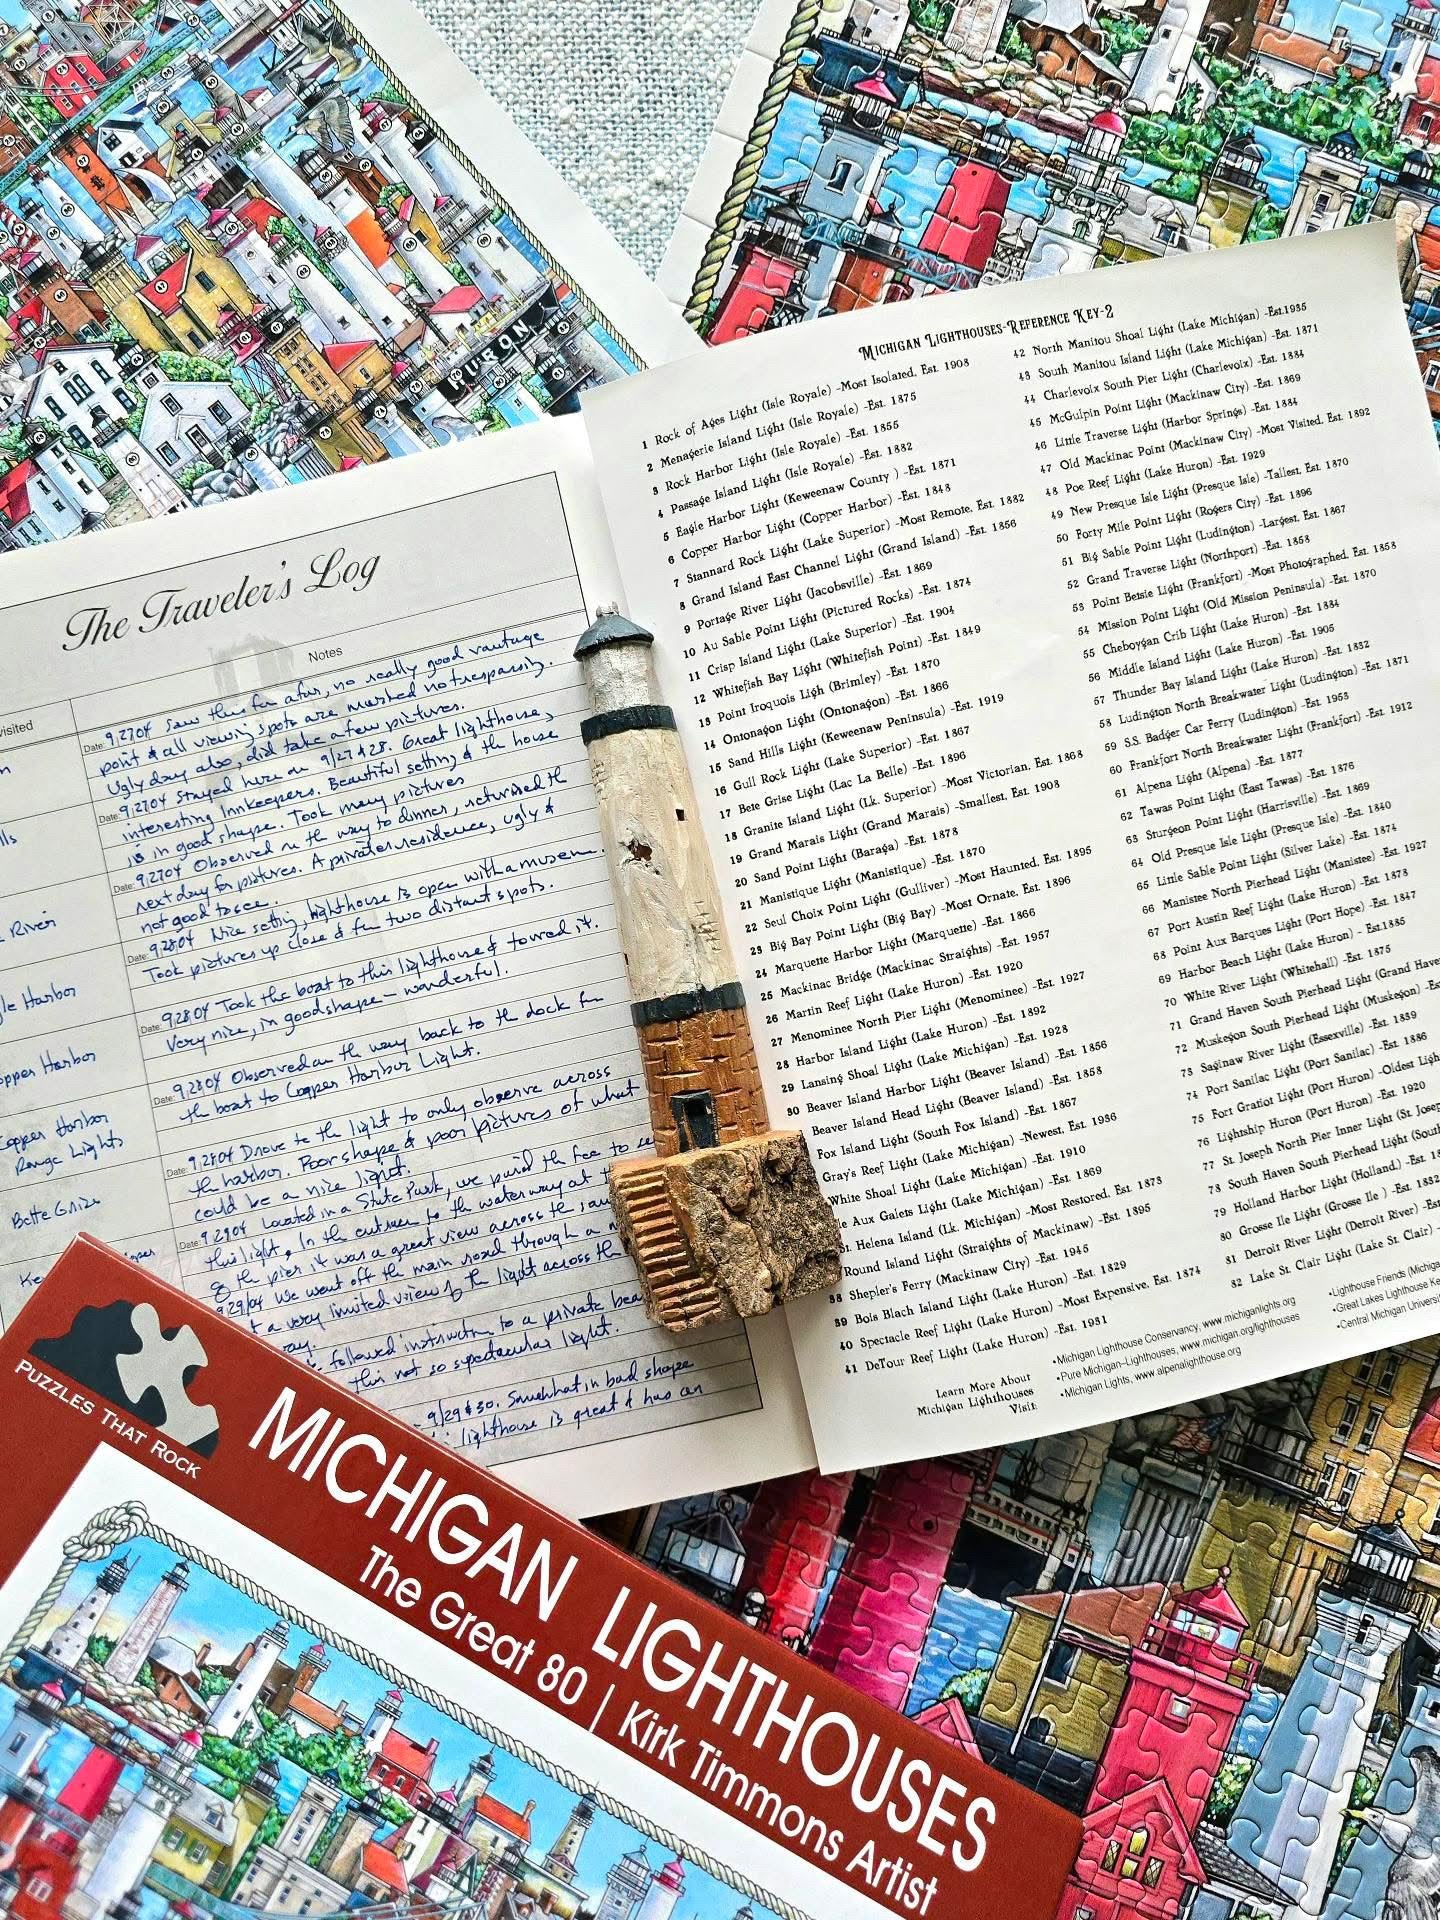 HURON
The Traveler's Log
Notes
Date: 9.27.04 Saw this from afar, no really good vantage
point & all viewing spots are marked no trespassing.
Ugly day also, did take a few pictures.
Date: 9.27.04 Stayed here on 9/27 & 28. Great lighthouse,
interesting Innkeepers. Beautiful setting & the house
is in good shape. Took many pictures
Date: 9.27.04 Observed on the way to dinner, returned the
next day for pictures. A private residence, ugly &
not good to see.
Date: 9.28.04 Nice setting, lighthouse is open with a museum.
Took pictures up close & from two distant spots.
River
Harbor
Date: 9.28.04 Took the boat to this lighthouse & toured it.
Very nice, in good shape - wonderful.
opper Harbor
Date: 9.28.04 Observed on the way back to the dock from
the boat to Copper Harbor Light.
Copper Harbor
Range Lights
Date: 9.28.04 Drove to the light to only observe across
the harbor. Poor shape & poor pictures of what
could be a nice light.
Bette Grize
Date: 9.29.04 Located in a State Park, we paid the fee to
this light. In the entrance to the waterway at
of the pier it was a great view across the
9/29/04 We went off the main road through a
a very limited view of the light across the
followed instruction to a private
this not so spectacular light.
9/29 & 30. Somewhat in bad shape
lighthouse is great & has an
Michigan Lighthouses-Reference Key-2
1 Rock of Ages Light (Isle Royale) -Most Isolated, Est. 1908
2 Menagerie Island Light (Isle Royale) -Est. 1875
3 Rock Harbor Light (Isle Royale) -Est. 1855
4 Passage Island Light (Isle Royale) -Est. 1882
5 Eagle Harbor Light (Keweenaw County ) -Est. 1871
6 Copper Harbor Light (Copper Harbor) -Est. 1848
7 Stannard Rock Light (Lake Superior) -Most Remote, Est. 1882
8 Grand Island East Channel Light (Grand Island) -Est. 1856
9 Portage River Light (Jacobsville) -Est. 1869
10 Au Sable Point Light (Pictured Rocks) -Est. 1874
11 Crisp Island Light (Lake Superior) -Est. 1904
12 Whitefish Bay Light (Whitefish Point) -Est. 1849
13 Point Iroquois Ligh (Brimley) -Est. 1870
14 Ontonagon Light (Ontonagon) -Est. 1866
15 Sand Hills Light (Keweenaw Peninsula) -Est. 1919
16 Gull Rock Light (Lake Superior) -Est. 1867
17 Bete Grise Light (Lac La Belle) -Est. 1896
18 Granite Island Light (Lk. Superior) -Most Victorian, Est. 1868
19 Grand Marais Light (Grand Marais) -Smallest, Est. 1908
20 Sand Point Light (Baraga) -Est. 1878
21 Manistique Light (Manistique) -Est. 1870
22 Seul Choix Point Light (Gulliver) -Most Haunted, Est. 1895
23 Big Bay Point Light (Big Bay) -Most Ornate, Est. 1896
24 Marquette Harbor Light (Marquette) -Est. 1866
25 Mackinac Bridge (Mackinac Straights) -Est. 1957
26 Martin Reef Light (Lake Huron) -Est. 1920
27 Menominee North Pier Light (Menominee) -Est. 1927
28 Harbor Island Light (Lake Huron) -Est. 1892
29 Lansing Shoal Light (Lake Michigan) -Est. 1928
30 Beaver Island Harbor Light (Beaver Island) -Est. 1856
Beaver Island Head Light (Beaver Island) -Est. 1858
Fox Island Light (South Fox Island) -Est. 1867
Gray's Reef Light (Lake Michigan) -Newest, Est. 1936
White Shoal Light (Lake Michigan) -Est. 1910
le Aux Galets Light (Lake Michigan) -Est. 1869
St. Helena Island (Lk. Michigan) -Most Restored, Est. 1873
Round Island Light (Straights of Mackinaw) -Est. 1895
38 Shepler's Ferry (Mackinaw City) -Est. 1945
39 Bois Black Island Light (Lake Huron) -Est. 1829
40 Spectacle Reef Light (Lake Huron) -Most Expensive, Est. 1874
41 DeTour Reef Light (Lake Huron) -Est. 1931
42 North Manitou Shoal Light (Lake Michigan) -Est.1935
43 South Manitou Island Light (Lake Michigan) -Est. 1871
44 Charlevoix South Pier Light (Charlevoix) -Est. 1884
45 McGulpin Point Light (Mackinaw City) -Est. 1869
46 Little Traverse Light (Harbor Springs) -Est. 1884
47 Old Mackinac Point (Mackinaw City) -Most Visited, Est. 1892
48 Poe Reef Light (Lake Huron) -Est. 1929
49 New Presque Isle Light (Presque Isle) -Tallest, Est. 1870
50 Forty Mile Point Light (Rogers City) -Est. 1896
51 Big Sable Point Light (Ludington) -Largest, Est. 1867
52 Grand Traverse Light (Northport) -Est. 1858
53 Point Betsie Light (Frankfort) -Most Photographed, Est. 1858
54 Mission Point Light (Old Mission Peninsula) -Est. 1870
55 Cheboygan Crib Light (Lake Huron) -Est. 1884
56 Middle Island Light (Lake Huron) -Est. 1905
57 Thunder Bay Island Light (Lake Huron) -Est. 1832
58 Ludington North Breakwater Light (Ludington) -Est. 1871
59 S.S. Badger Car Ferry (Ludington) -Est. 1953
60 Frankfort North Breakwater Light (Frankfort) -Est. 1912
61 Alpena Light (Alpena) -Est. 1877
62 Tawas Point Light (East Tawas) -Est. 1876
63 Sturgeon Point Light (Harrisville) -Est. 1869
64 Old Presque Isle Light (Presque Isle) -Est. 1840
65 Little Sable Point Light (Silver Lake) -Est. 1874
66 Manistee North Pierhead Light (Manistee) -Est. 1927
67 Port Austin Reef Light (Lake Huron) -Est. 1878
68 Point Aux Barques Light (Port Hope) -Est. 1847
69 Harbor Beach Light (Lake Huron) - Est.1885
70 White River Light (Whitehall) -Est. 1875
71 Grand Haven South Pierhead Light (Grand Haven
72 Muskegon South Pierhead Light (Muskegon)
73 Saginaw River Light (Essexville) -Est. 1839
74 Port Sanilac Light (Port Sanilac) -Est. 1886
75 Fort Gratiot Light (Port Huron) -Oldest
76 Lightship Huron (Port Huron) -Est. 1920
77 St. Joseph North Pier Inner Light (St. Josep
78 South Haven South Pierhead Light (South
79 Holland Harbor Light (Holland) -Est.
80 Grosse Ile Light (Grosse Ile ) -Est.
81 Detroit River Light (Detroit River) -Est
82 Lake St. Clair Light (Lake St. Clair) -
Learn More About
Michigan Lighthouses
Visit:
•Michigan Lighthouse Conservancy, www.michiganlights.org
•Pure Michigan–Lighthouses, www.michigan.org/lighthouses
•Michigan Lights, www.alpenalighthouse.org
•Lighthouse Friends (Michiga
•Great Lakes Lighthouse Ke
•Central Michigan Universi
PUZZLES THAT ROCK
MICHIGAN LIGHTHOUSES
The Great 80 | Kirk Timmons Artist